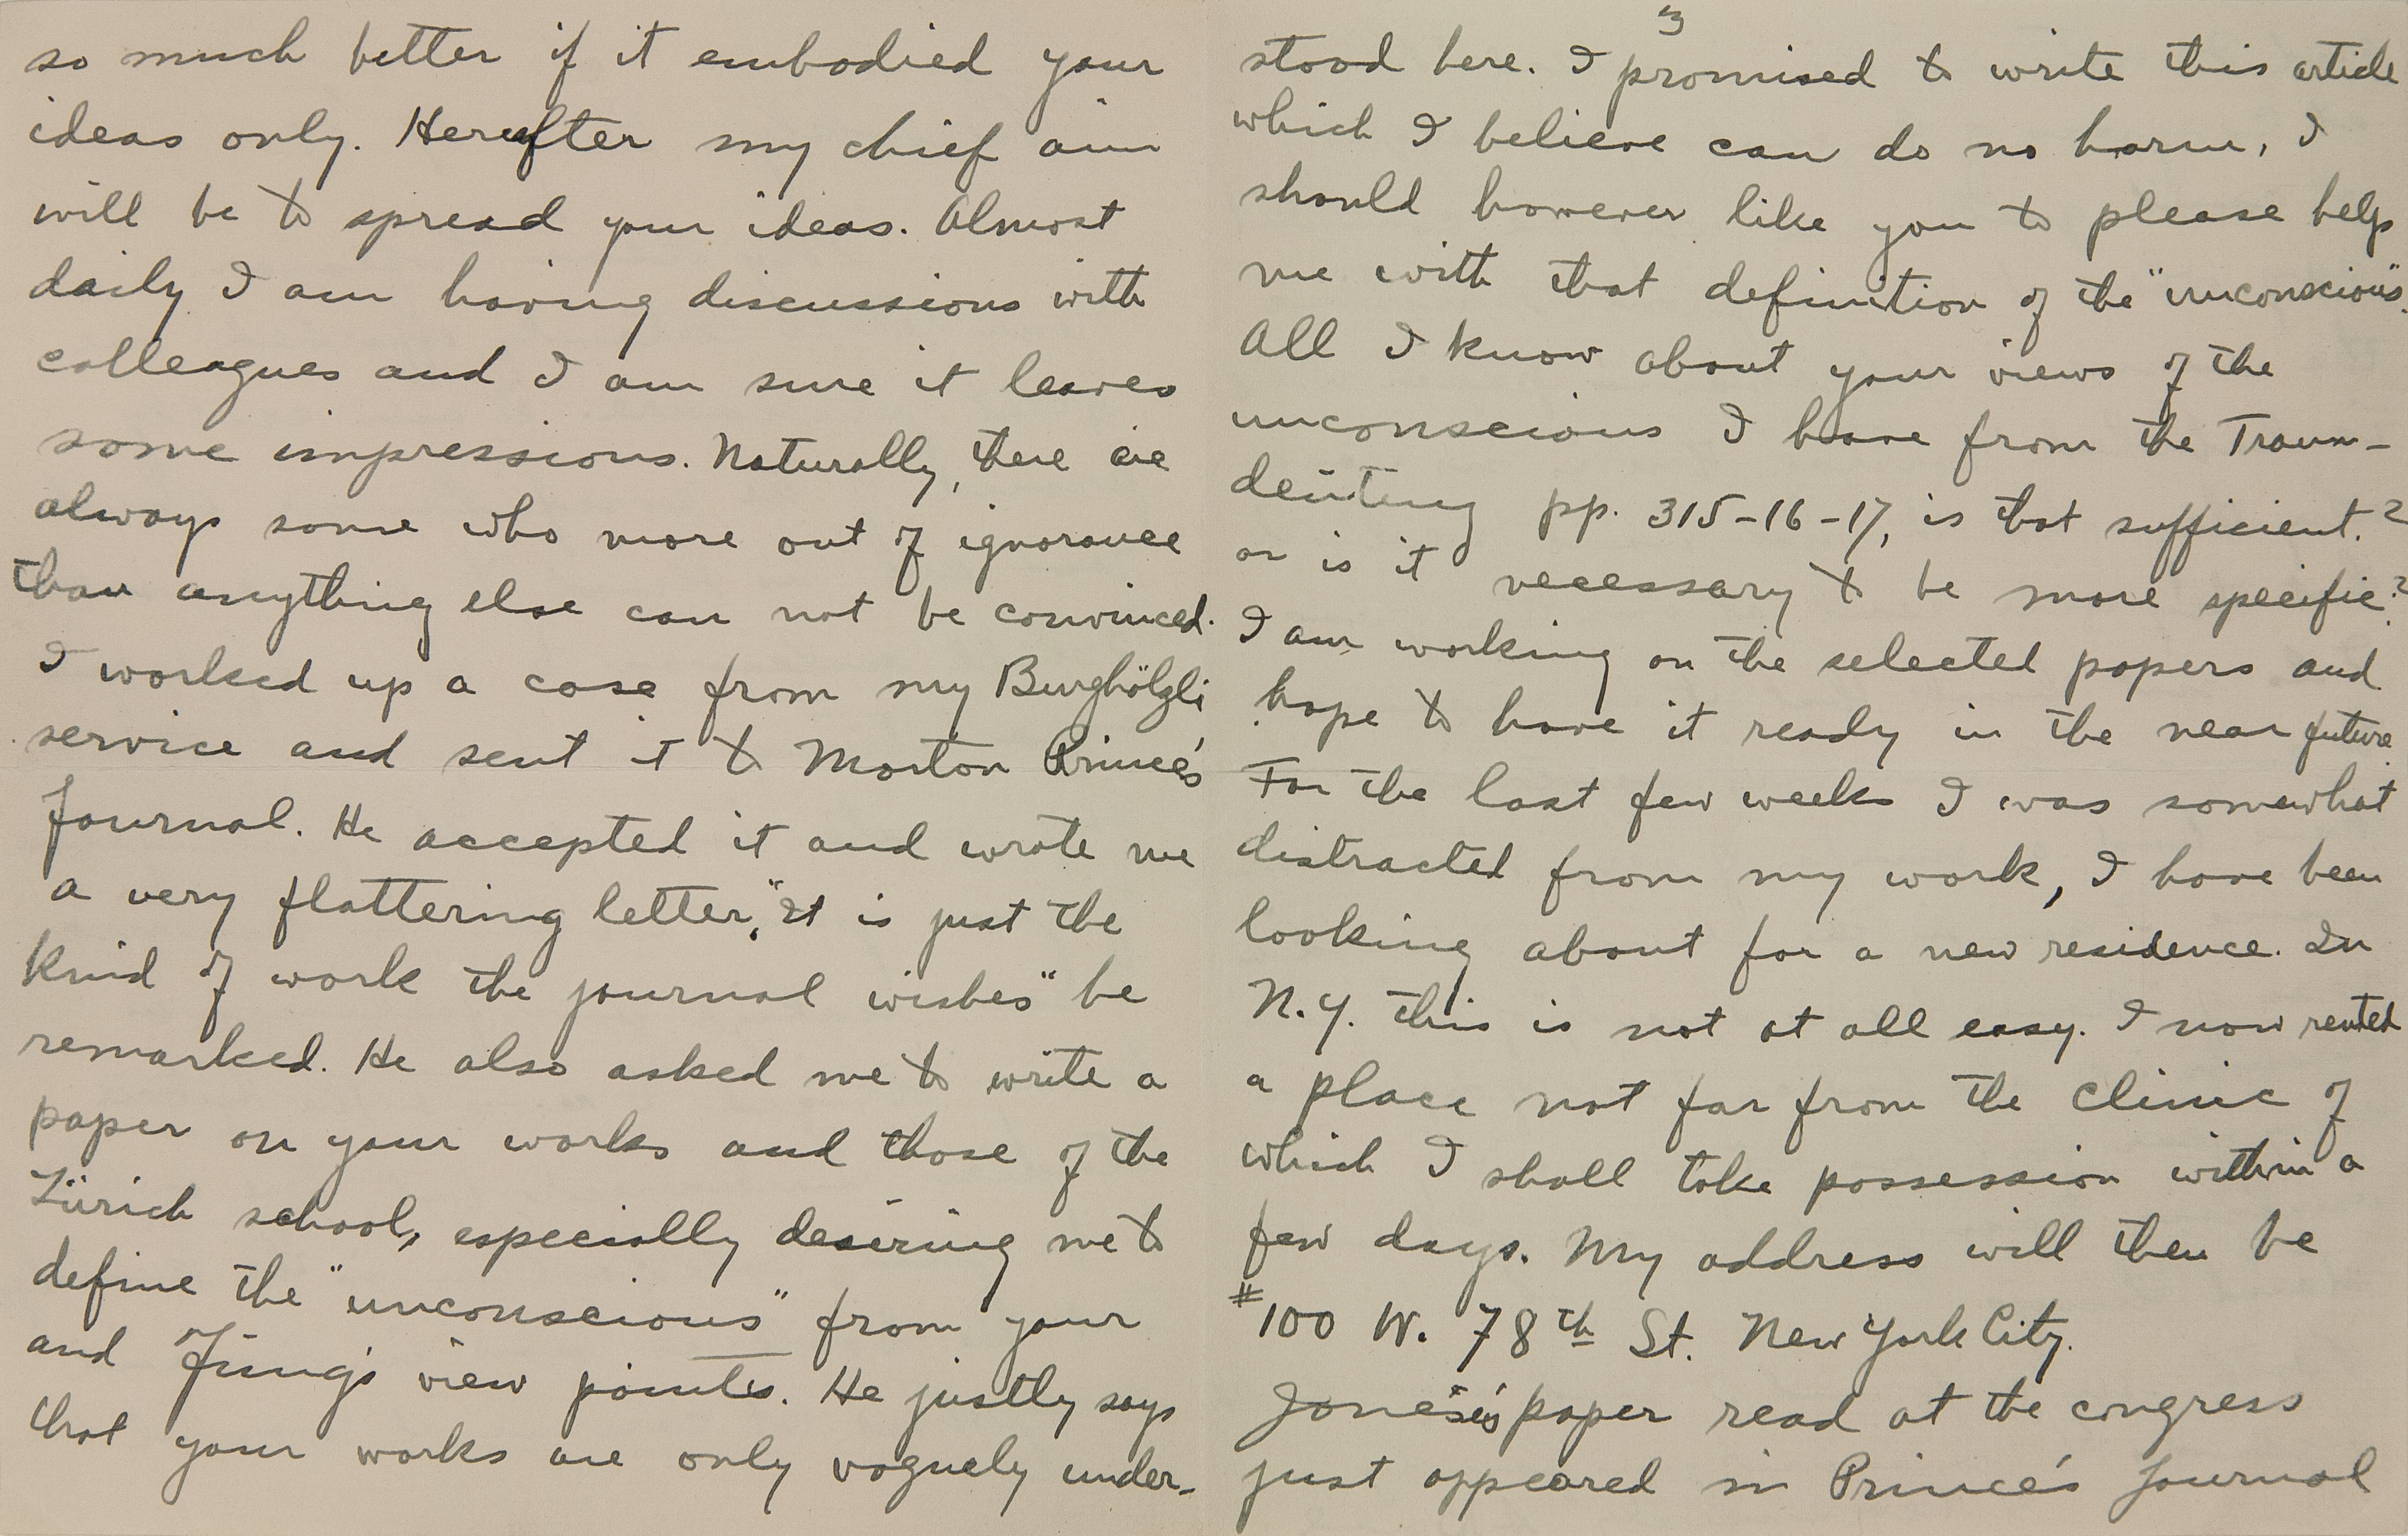 so much better if it embodied your
ideas only. Hereafter my chief aim
will be to spread your ideas. Almost
daily I am having discussions with
colleagues and I am sure it leaves
some impressions. Naturally, there are
always some who more out of ignorance
than anything else can not be convinced.
I worked up a case from my Burghölzli
service and sent it to Morton Prince's
Journal. He accepted it and wrote me
a very flattering letter, "It is just the
kind of work the journal wishes" he
remarked. He also asked me to write a
paper on your works and those of the
Zürich school, especially desiring me to
define the "unconscious" from your
and Jung's view points. He justly says
that your works are only vaguely under-
3
stood here. I promised to write this article
which I believe can do no harm, I
should however like you to please help
me with that definition of the "unconscious".
All I know about your views of the
unconscious I have from the Traum-
deutung pp. 315-16-17, is that sufficient?
or is it necessary to be more specific?
I am working on the selected papers and
hope to have it ready in the near future.
For the last few weeks I was somewhat
distracted from my work, I have been
looking about for a new residence. In
N.Y. this is not at all easy. I now rented
a place not far from the clinic of
which I shall take possession within a
few days. My address will then be
#100 W. 78th St. New York City.
Jones's paper read at the congress
just appeared in Prince's Journal